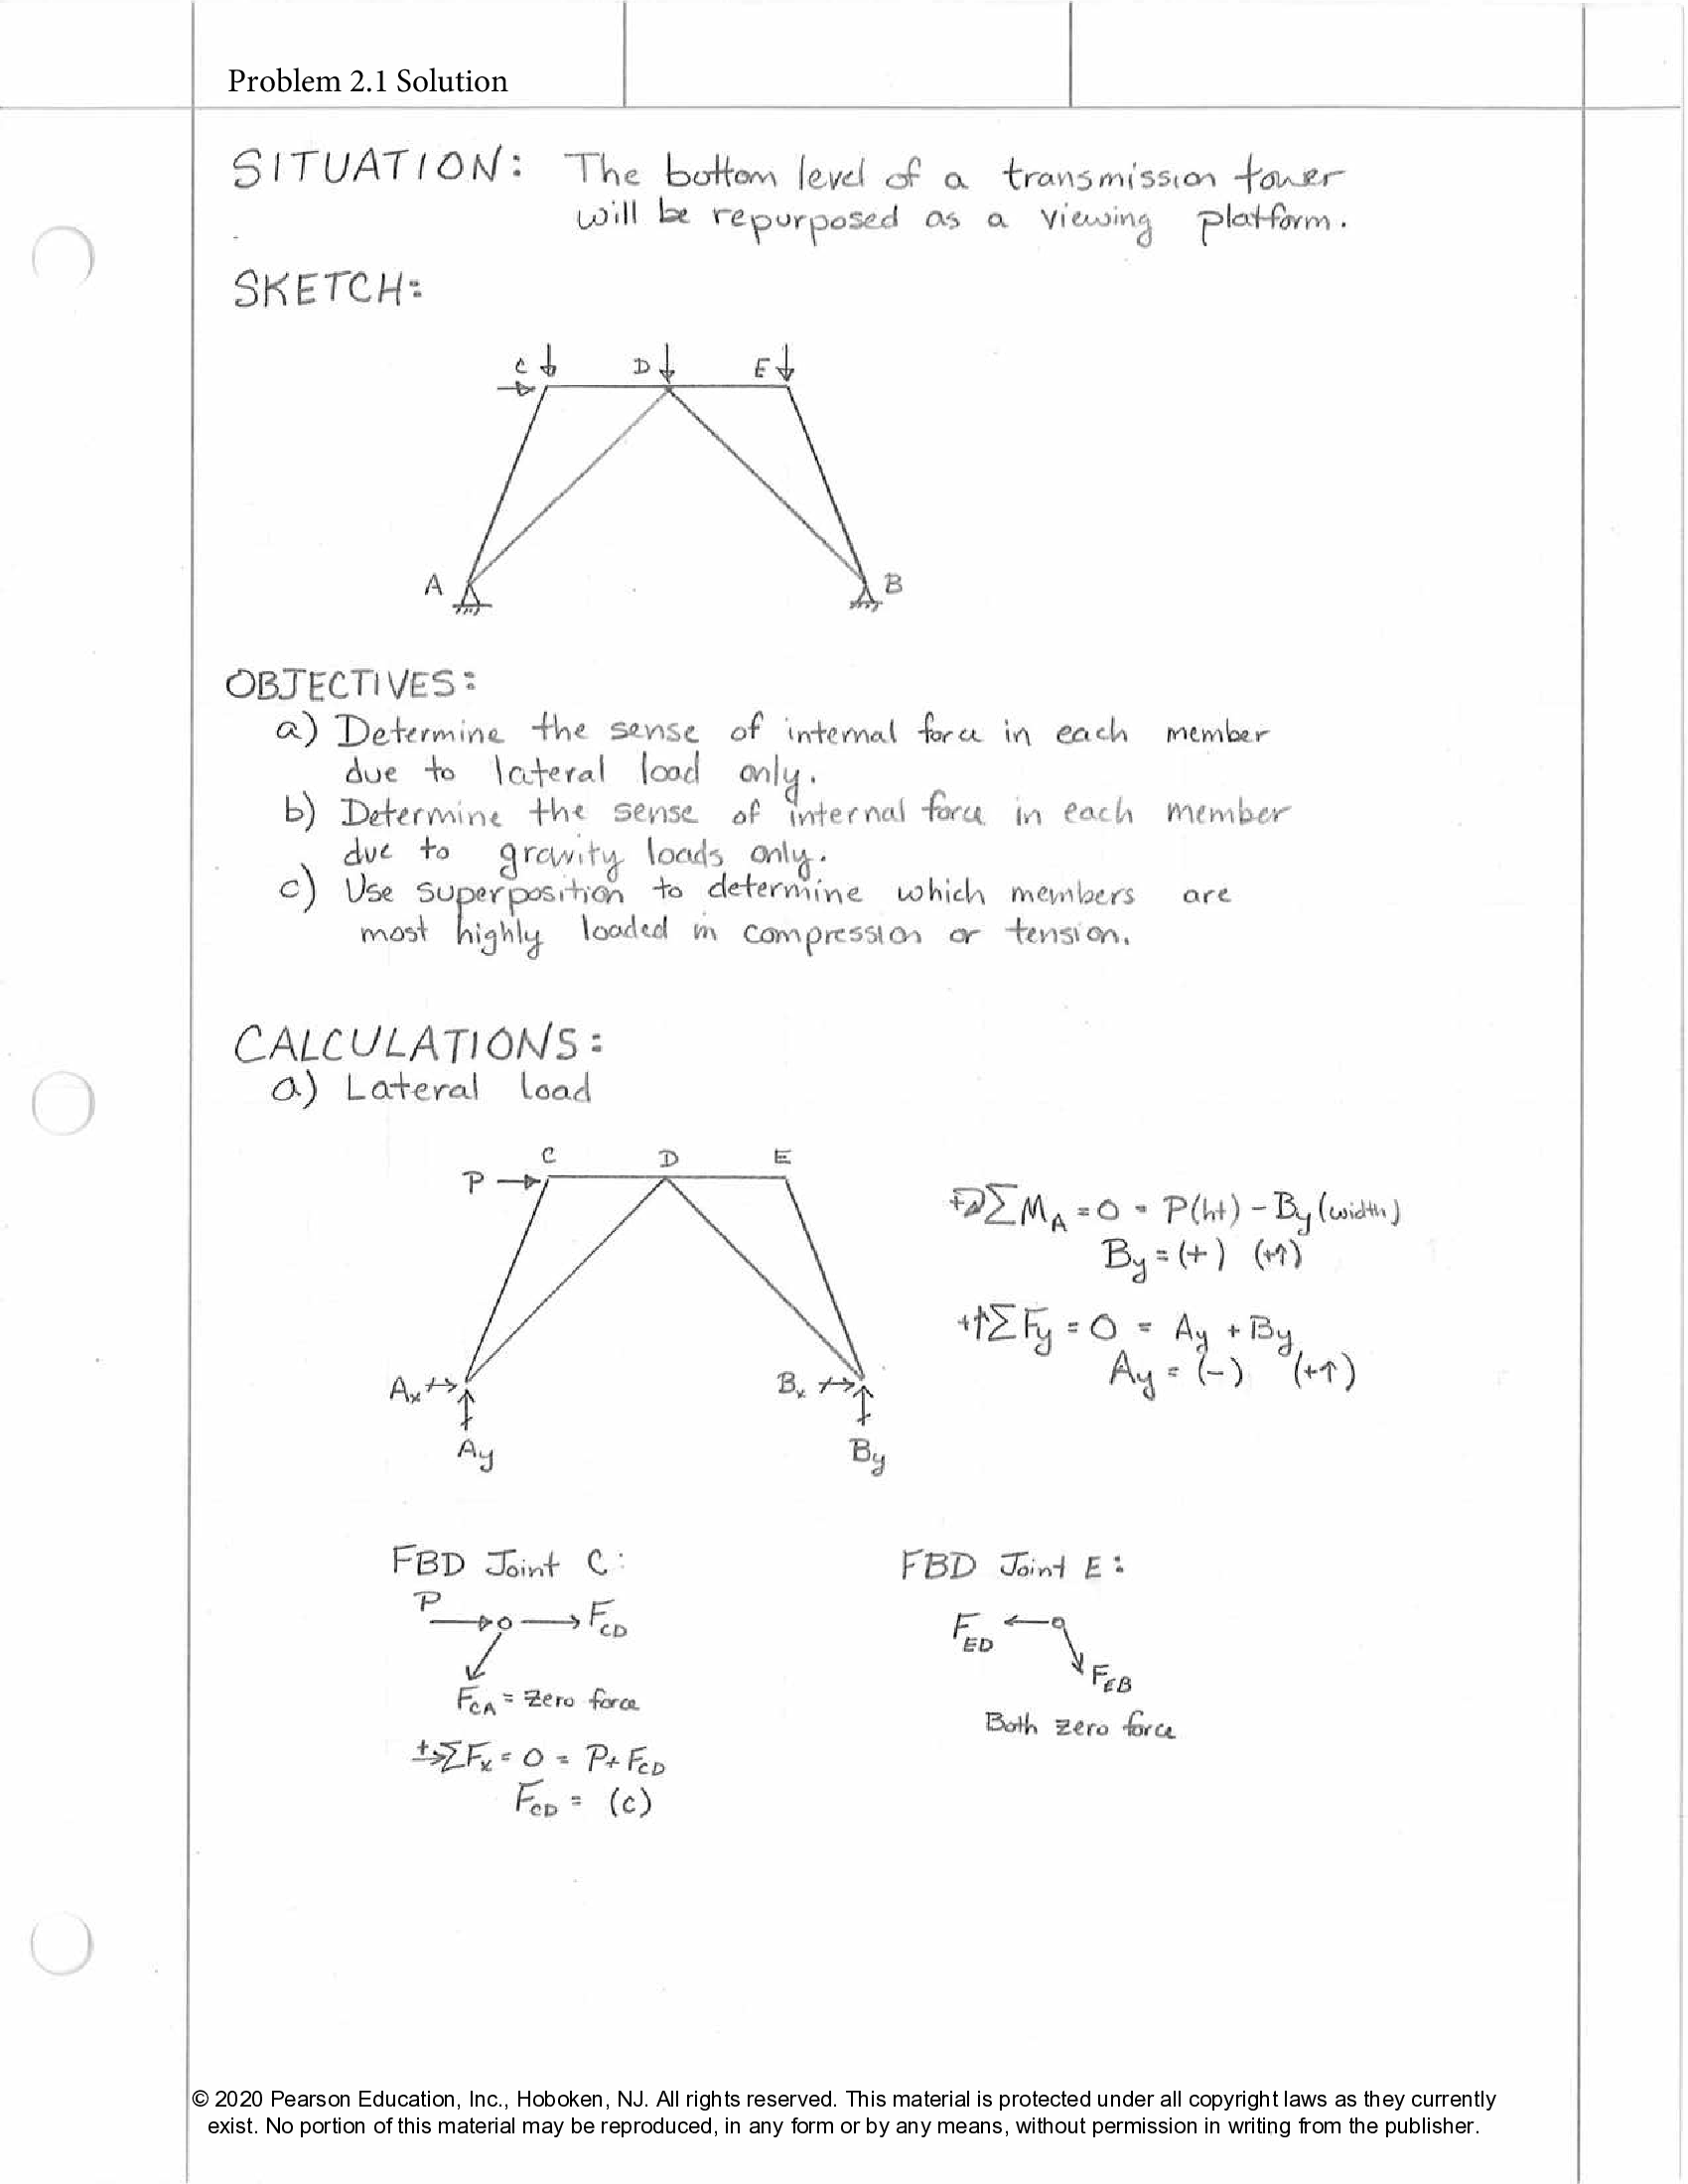 Problem 2.1 Solution
SITUATION: The bottom level of a transmission tower
will be repurposed as a viewing platform.
SKETCH:
C D E
A B
OBJECTIVES:
a) Determine the sense of internal force in each member
due to lateral load only.
b) Determine the sense of internal force in each member
due to gravity loads only.
c) Use superposition to determine which members are
most highly loaded in compression or tension.
CALCULATIONS:
a) Lateral load
C D E
P
+↻ΣM_A = 0 = P(ht) - By(width)
By = (+) (+↑)
+↑ΣFy = 0 = Ay + By
Ay = (-) (+↑)
Ax Bx
Ay By
FBD Joint C:
P F_CD
F_CA = Zero force
+→ΣFx = 0 = P + F_CD
F_CD = (c)
FBD Joint E:
F_ED
F_EB
Both zero force
© 2020 Pearson Education, Inc., Hoboken, NJ. All rights reserved. This material is protected under all copyright laws as they currently
exist. No portion of this material may be reproduced, in any form or by any means, without permission in writing from the publisher.